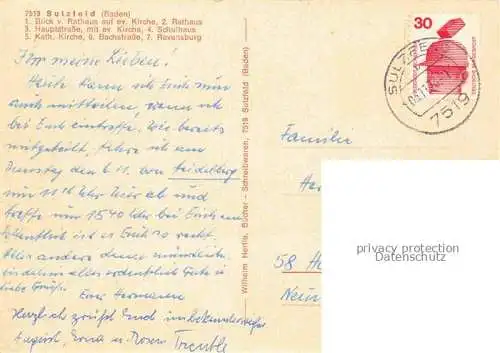 7519 Sulzfeld (Baden)
1. Blick v. Rathaus auf ev. Kirche, 2. Rathaus
3. Hauptstraße, mit ev. Kirche, 4. Schulhaus
5. Kath. Kirche, 6. Bachstraße, 7. Ravensburg
Ihr meine Lieben!
Heute kann ich Euch nun
auch mitteilen wann ich
bei Euch eintreffe. Wie bereits
mitgeteilt, fahre ich am
Dienstag den 6.11. von Heidelberg
um 11 Uhr hier ab und
treffe um 15 40 Uhr bei Euch ein
Hoffentlich ist es Euch so recht.
Alles andere dann mündlich,
bis dahin alles Gute u.
liebe Grüße.
Euer Hermann
Herzlich grüßt Euch unbekannterweise
Wilhelm Hertle, Bücher - Schreibwaren, 7519 Sulzfeld (Baden)
30
SULZFE
7519
Familie
58 H
privacy protection
Datenschutz